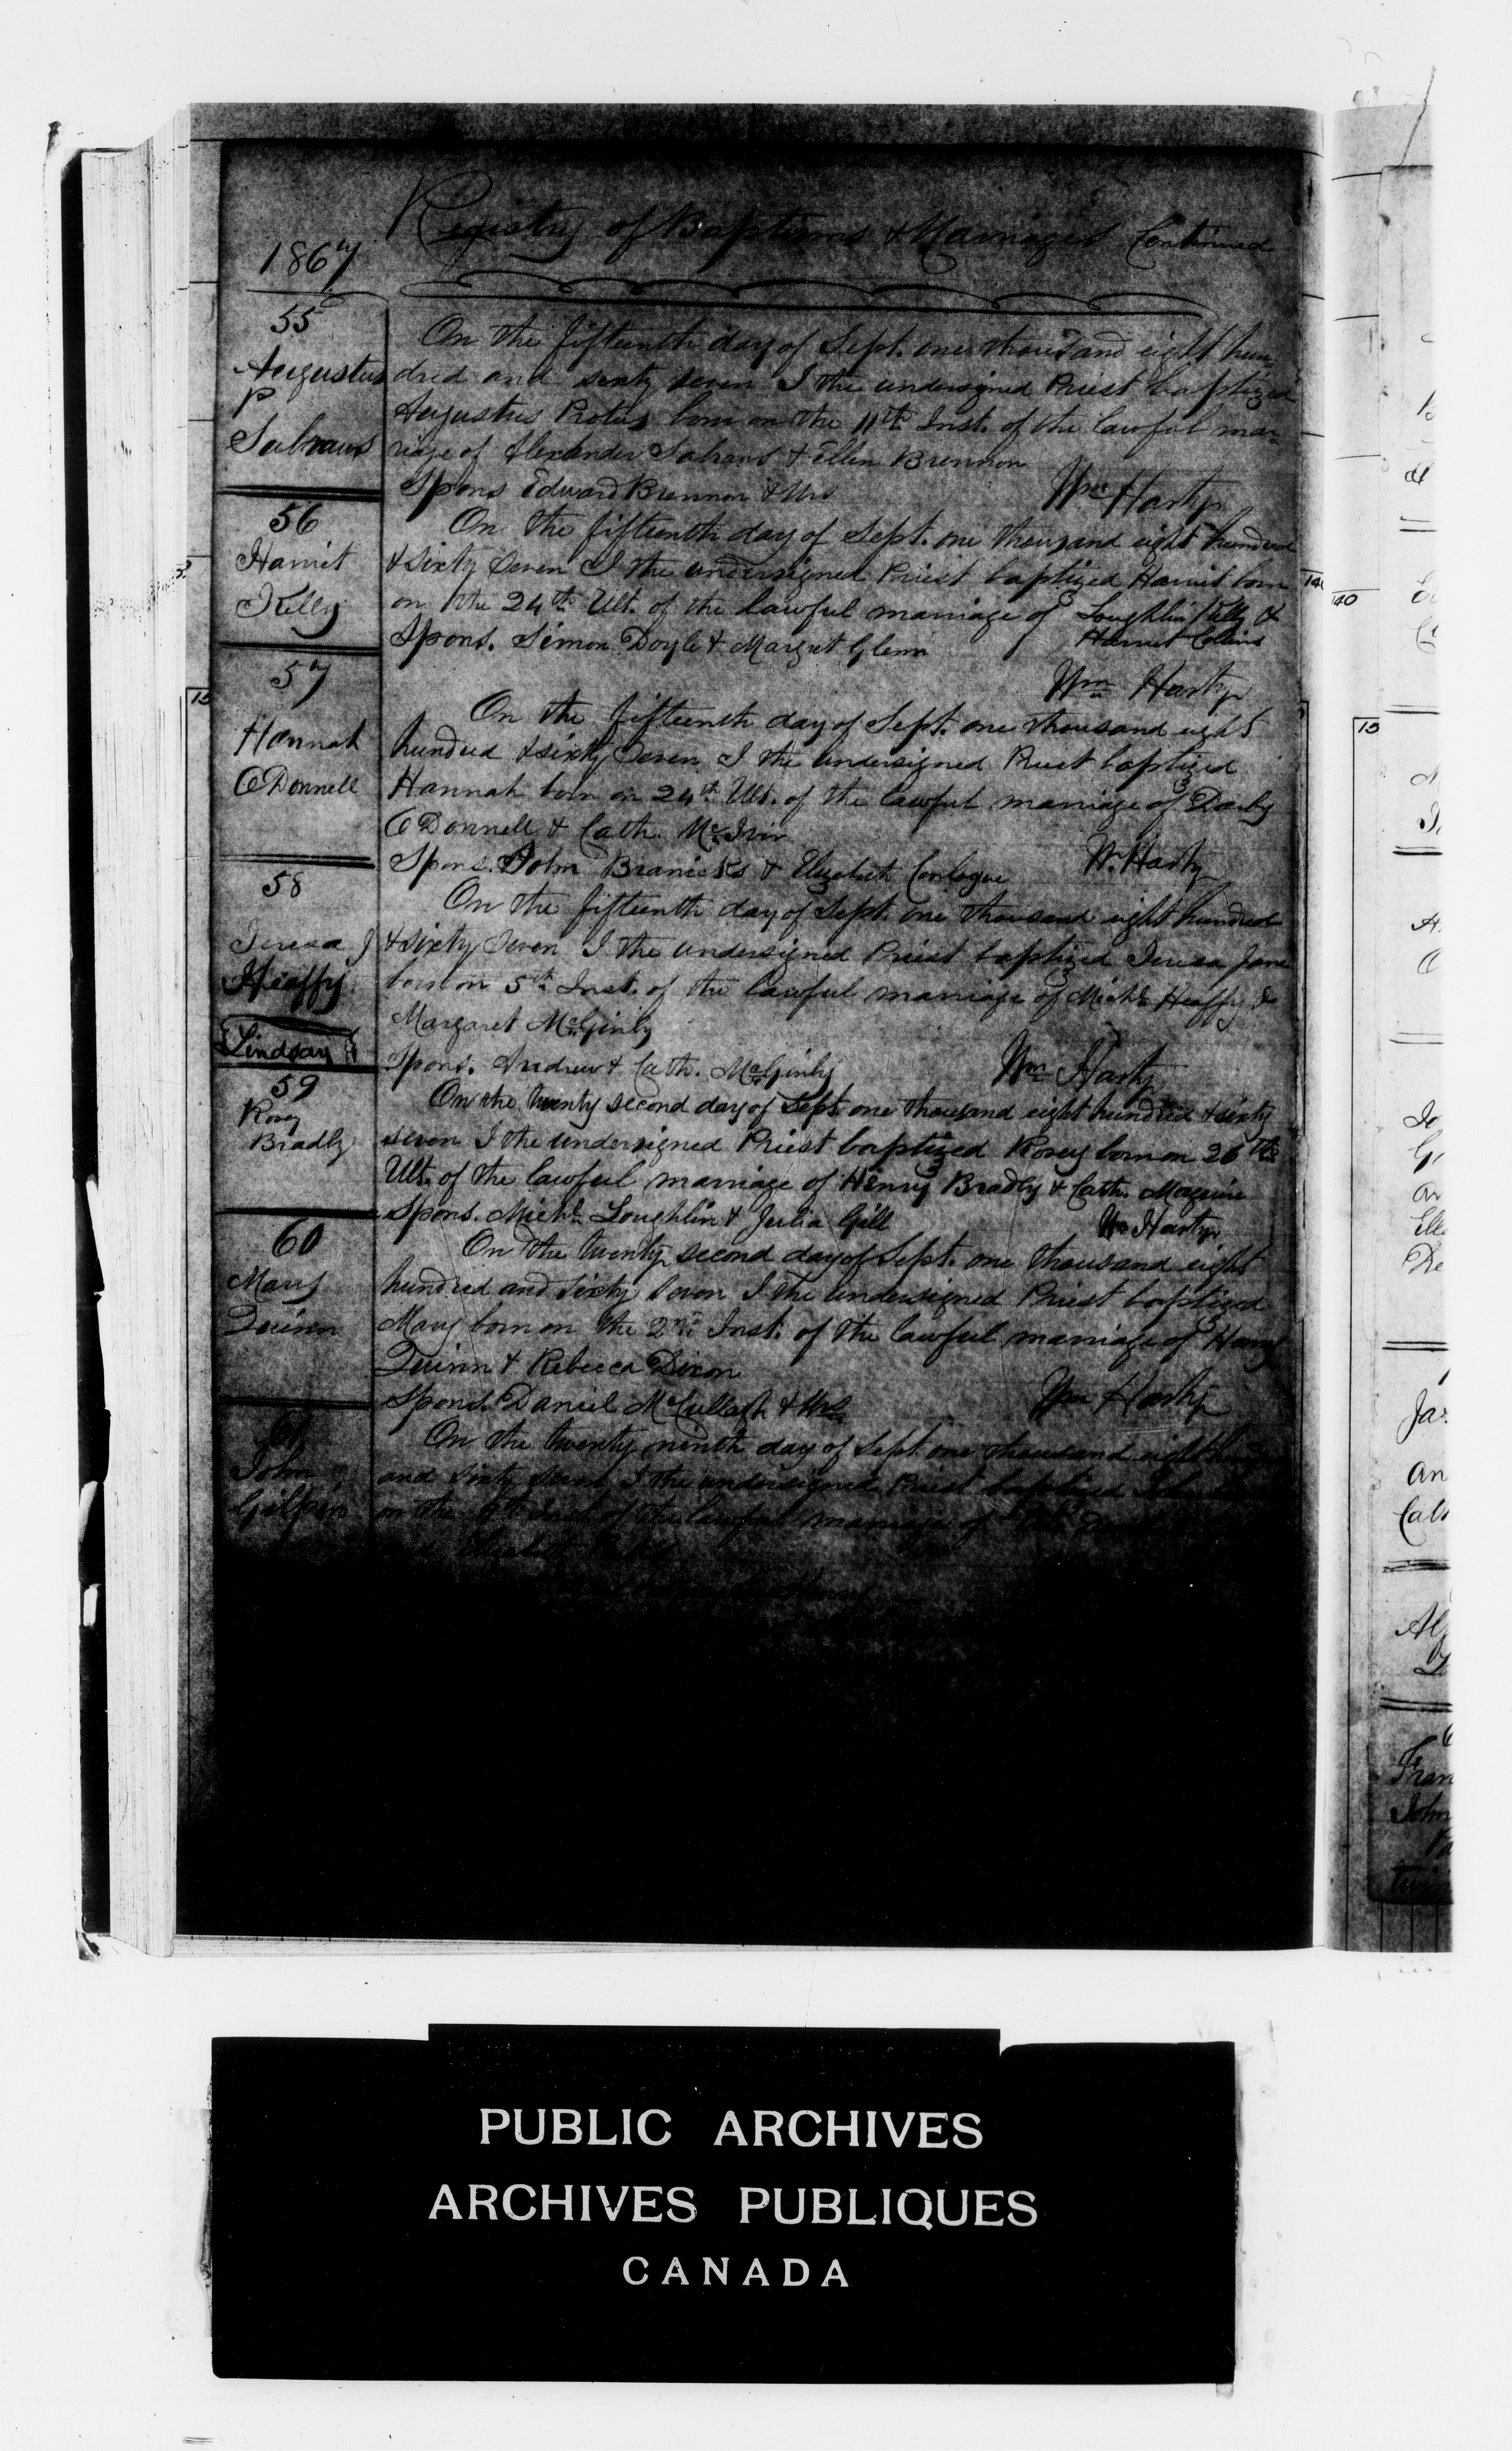 Registry of Baptisms & Marriages Continued
1867
55
Augustus
P
Sabraus
On the fifteenth day of Sept. one thousand eight hun-
dred and sixty seven I the undersigned Priest baptized
Augustus Protus born on the 11th Inst. of the lawful mar-
riage of Alexander Sabraus & Ellen Brennon
Spons Edward Brennon & Mrs
Wm Harty
56
Harriet
Kelly
On the fifteenth day of Sept. one thousand eight hundred
& sixty Seven I the undersigned Priest baptized Harriet born
on the 24th Ult. of the lawful marriage of Loughlin Kelly &
Harriet Collins
Spons. Simon Doyle & Margret Glenn
Wm Harty
57
Hannah
O'Donnell
On the fifteenth day of Sept. one thousand eight
hundred & sixty Seven I the undersigned Priest baptized
Hannah born on 24th Ult. of the lawful marriage of Darby
O'Donnell & Cath.
Spons. John & Elizabeth Conlogue
W. Harty
58
Teresa J
Heaffy
Lindsay
On the fifteenth day of Sept. one thousand eight hundred
& sixty Seven I the undersigned Priest baptized Teresa Jane
born on 5th Inst. of the lawful marriage of Michl Heaffy &
Margaret McGinly
Spons. Andrew & Cath. McGinly
Wm Harty
59
Rosy
Bradly
On the twenty second day of Sept one thousand eight hundred & sixty
seven I the undersigned Priest baptized Rosey born on 26th
Ult. of the lawful marriage of Henry Bradly & Cath. Maguire
Spons. Michl Loughlin & Julia Gill
Wm Harty
60
Mary
Quinn
On the twenty second day of Sept. one thousand eight
hundred and sixty seven I the undersigned Priest baptized
Mary born on the 2nd Inst. of the lawful marriage of Harry
Quinn & Rebecca Dixon
Spons. Daniel McCullagh & Mrs
Wm Harty
61
John
Gilpin
On the twenty ninth day of Sept one thousand eight
and sixty seven I the undersigned Priest baptized John
on the of the lawful marriage of
15
140
40
15
PUBLIC ARCHIVES
ARCHIVES PUBLIQUES
CANADA